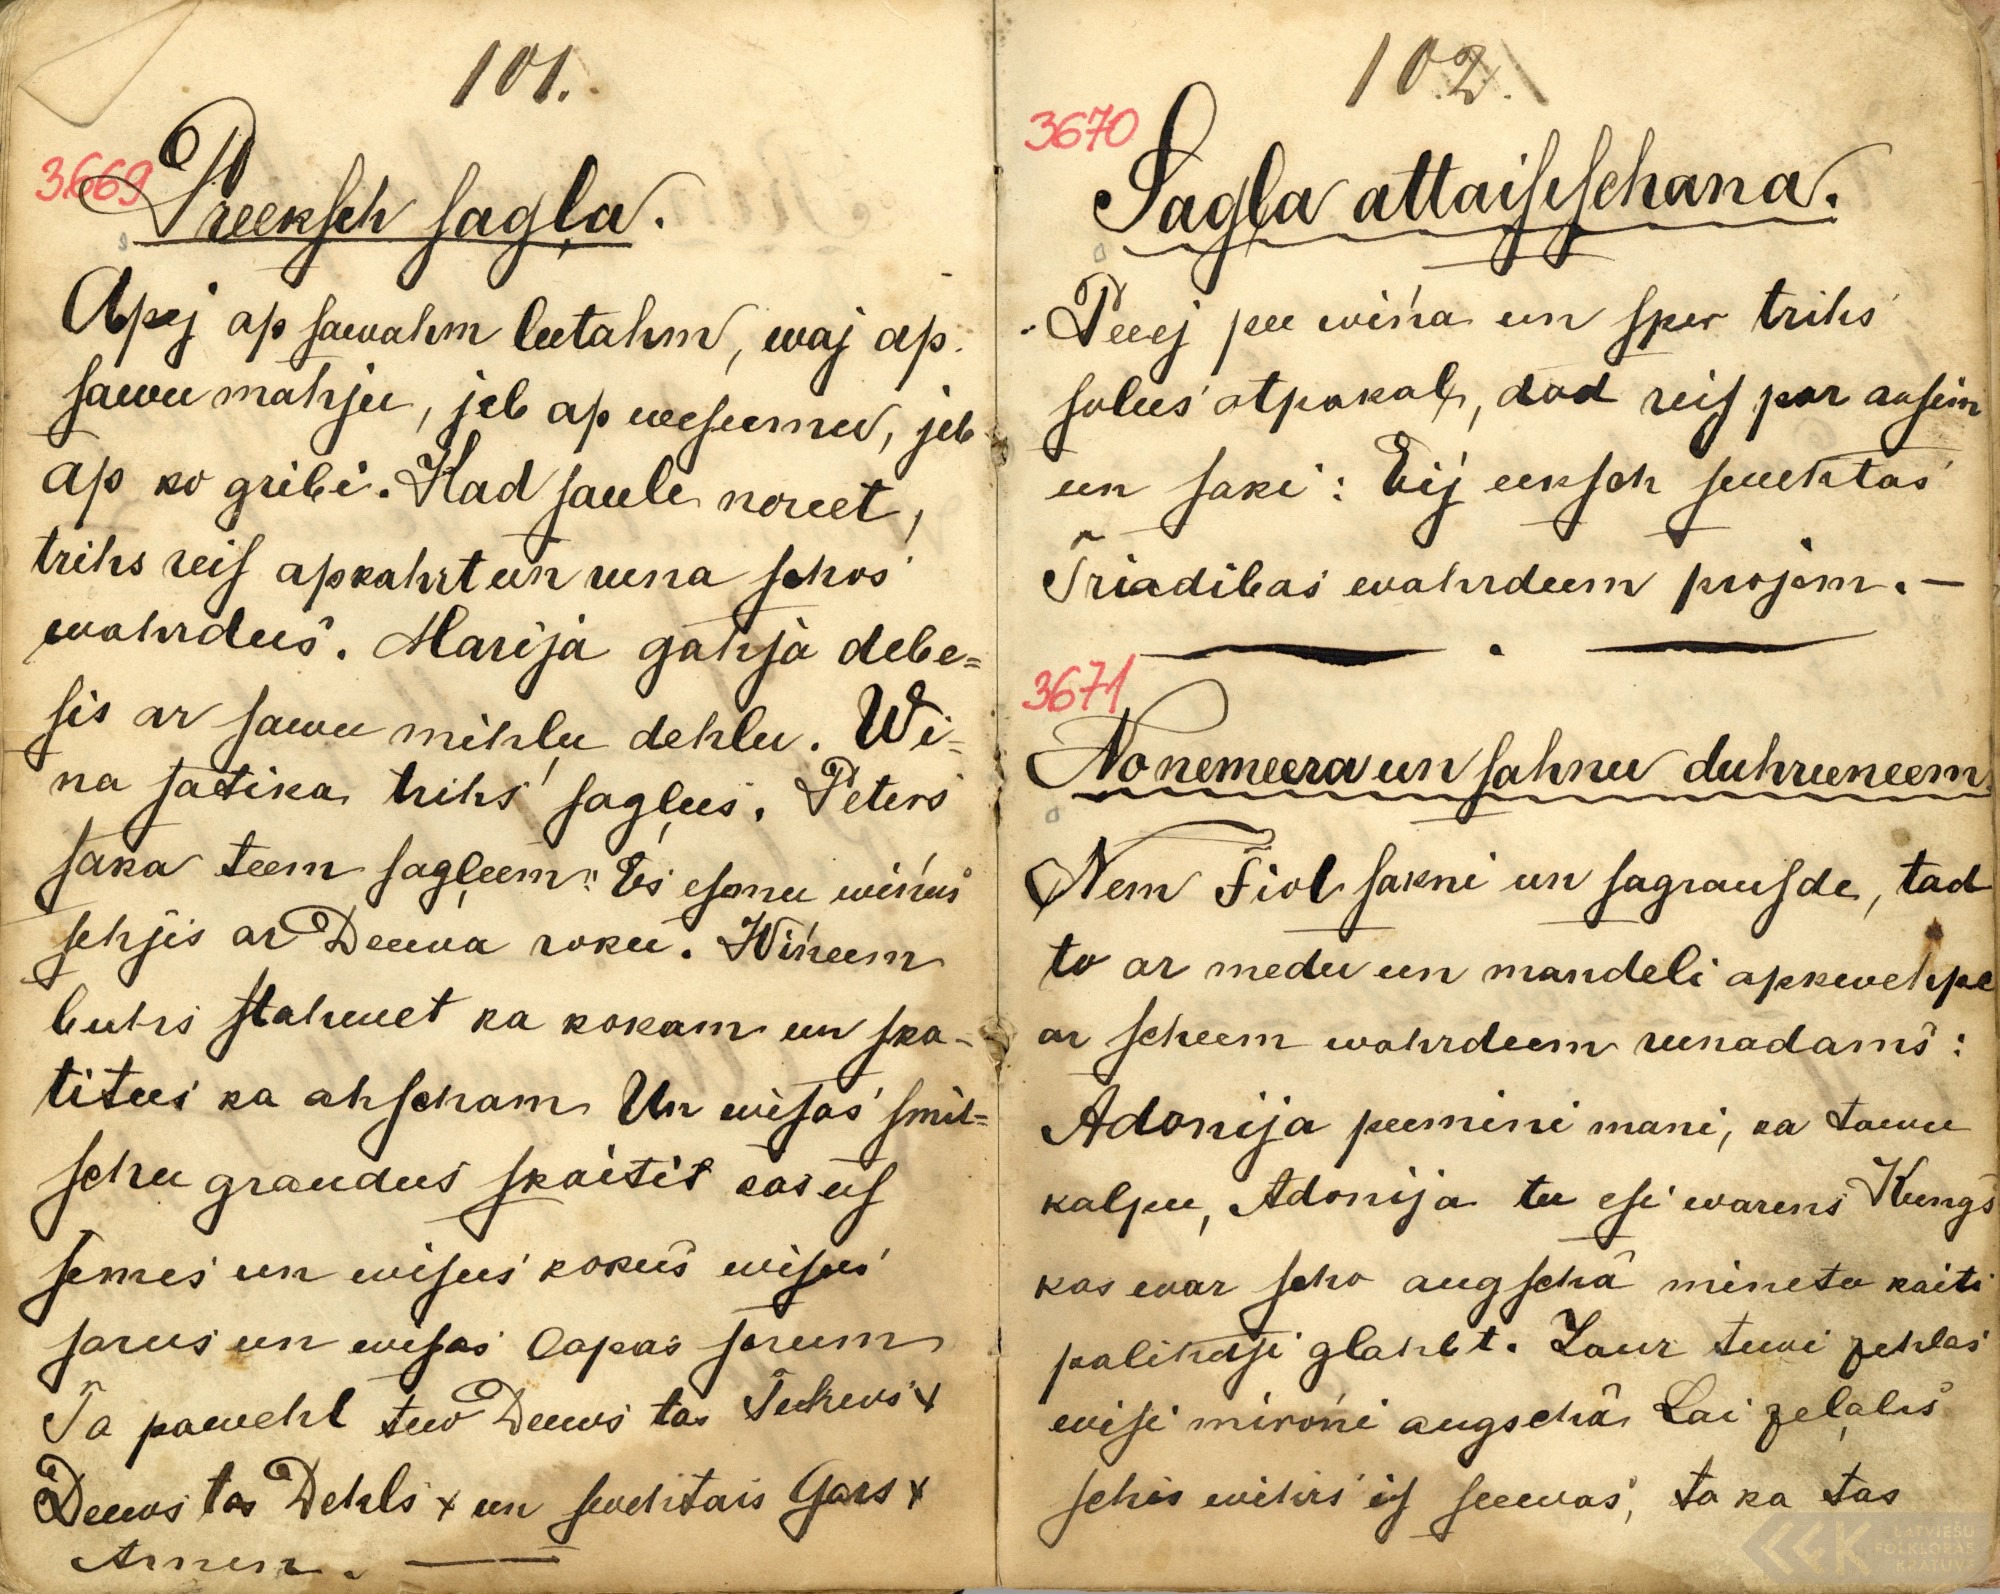 101.
3669
Preeksch sagļa.
Apej ap sawahm leetahm, waj ap
sawu mahju, jeb ap weseemu, jeb
ap ko gribi. Kad saule noreet,
trihs reis apkahrt un runa schos
wahrdus. Marija gahja debe=
sis ar sawu mihļu dehlu. Wi=
na satika trihs sagļus. Peters
saka teem sagļeem: Es esmu wińus
sehjis ar Deewa roku. Wińeem
buhs stahwet ka kokam un ska=
titees ka ahscham Un wisas smil=
schu graudus skaitit kas us
semes un wisus kokus wisus
sarus un wisas lapas sarum
Ta pawehl tew Deews tas Tehws x
Deews tas Dehls x un swehtais Gars x
Amen. —
102.
3670
Sagla attaisischana.
Peeej pee wińa un sper trihs
solus atpakaļ, dod reis par ausim
un saki: Eij eeksch swehtas
Triadibas wahrdeem projam. —
3671
No nemeera un sahnu duhreneem
Nem Fiol sakni un sagrausde, tad
to ar medu un mandeli apkwehpe
ar scheem wahrdeem runadams:
Adonija peemini mani, ka tawu
kalpu, Adonija tu esi warens Kungs
kas war scho augschä mineto kaiti
palihdsi glahbt. Zaur tewi zehlas
wisi mirońi augschä Lai zeļahs
schis wihrs is seewas, ta ka tas
LATVIEŠU
FOLKLORAS
KRĀTUVE